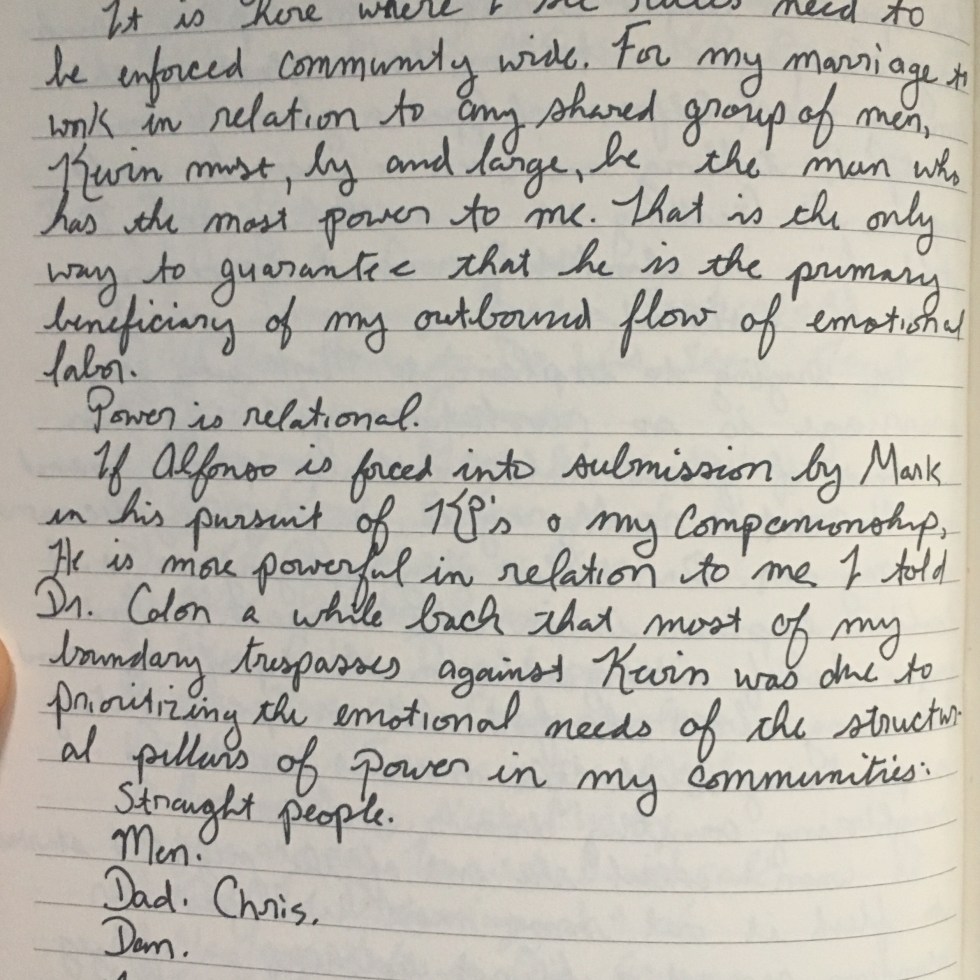 It is here where I see need to
be enforced community wide. For my marriage to
work in relation to any shared group of men,
Kevin must, by and large, be the man who
has the most power to me. That is the only
way to guarantee that he is the primary
beneficiary of my outbound flow of emotional
labor.
Power is relational.
If Alfonso is forced into submission by Mark
in his pursuit of KP's o my Companionship,
He is more powerful in relation to me I told
Dr. Colon a while back that most of my
boundary trespasses against Kevin was due to
prioritizing the emotional needs of the structur-
al pillars of power in my communities:
Straight people.
Men.
Dad. Chris.
Dam.